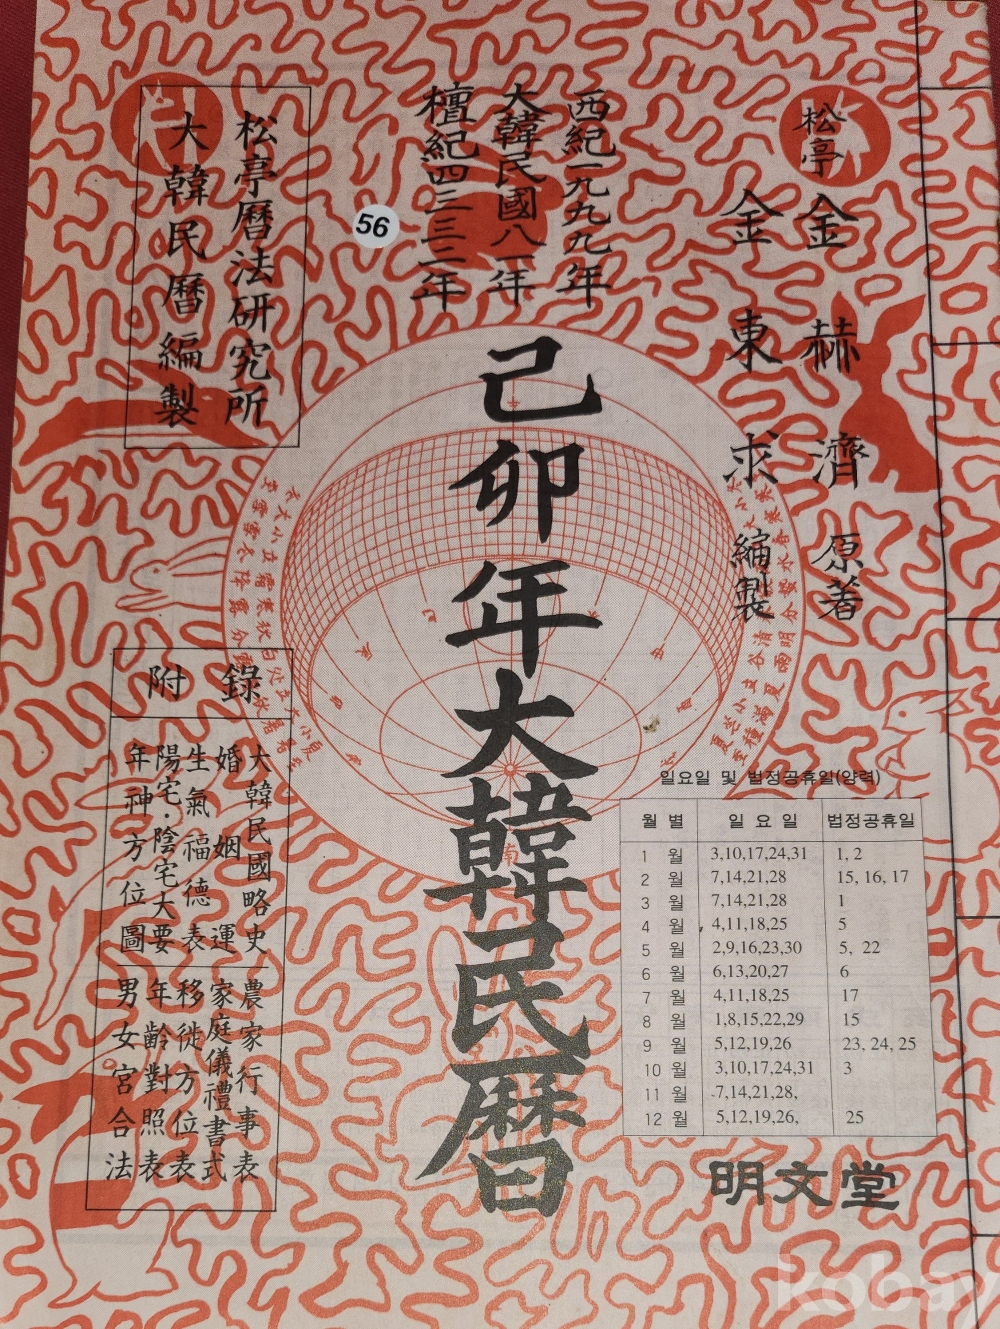 松亭 金赫濟 原著
金東求 編製
西紀一九九九年
大韓民國八一年
檀紀四三三二年
56
松亭曆法硏究所
大韓民曆編製
己卯年大韓民曆
附錄
大韓民國略史
婚姻運
生氣福德表
陽宅·陰宅大要
年神方位圖
農家行事表
家庭儀禮書式
移徙方位表
年齡對照表
男女宮合法
일요일 및 법정공휴일(양력)
월 별 일 요 일 법정공휴일
1 월 3,10,17,24,31 1, 2
2 월 7,14,21,28 15, 16, 17
3 월 7,14,21,28 1
4 월 4,11,18,25 5
5 월 2,9,16,23,30 5, 22
6 월 6,13,20,27 6
7 월 4,11,18,25 17
8 월 1,8,15,22,29 15
9 월 5,12,19,26 23, 24, 25
10 월 3,10,17,24,31 3
11 월 7,14,21,28,
12 월 5,12,19,26, 25
明文堂
kobay